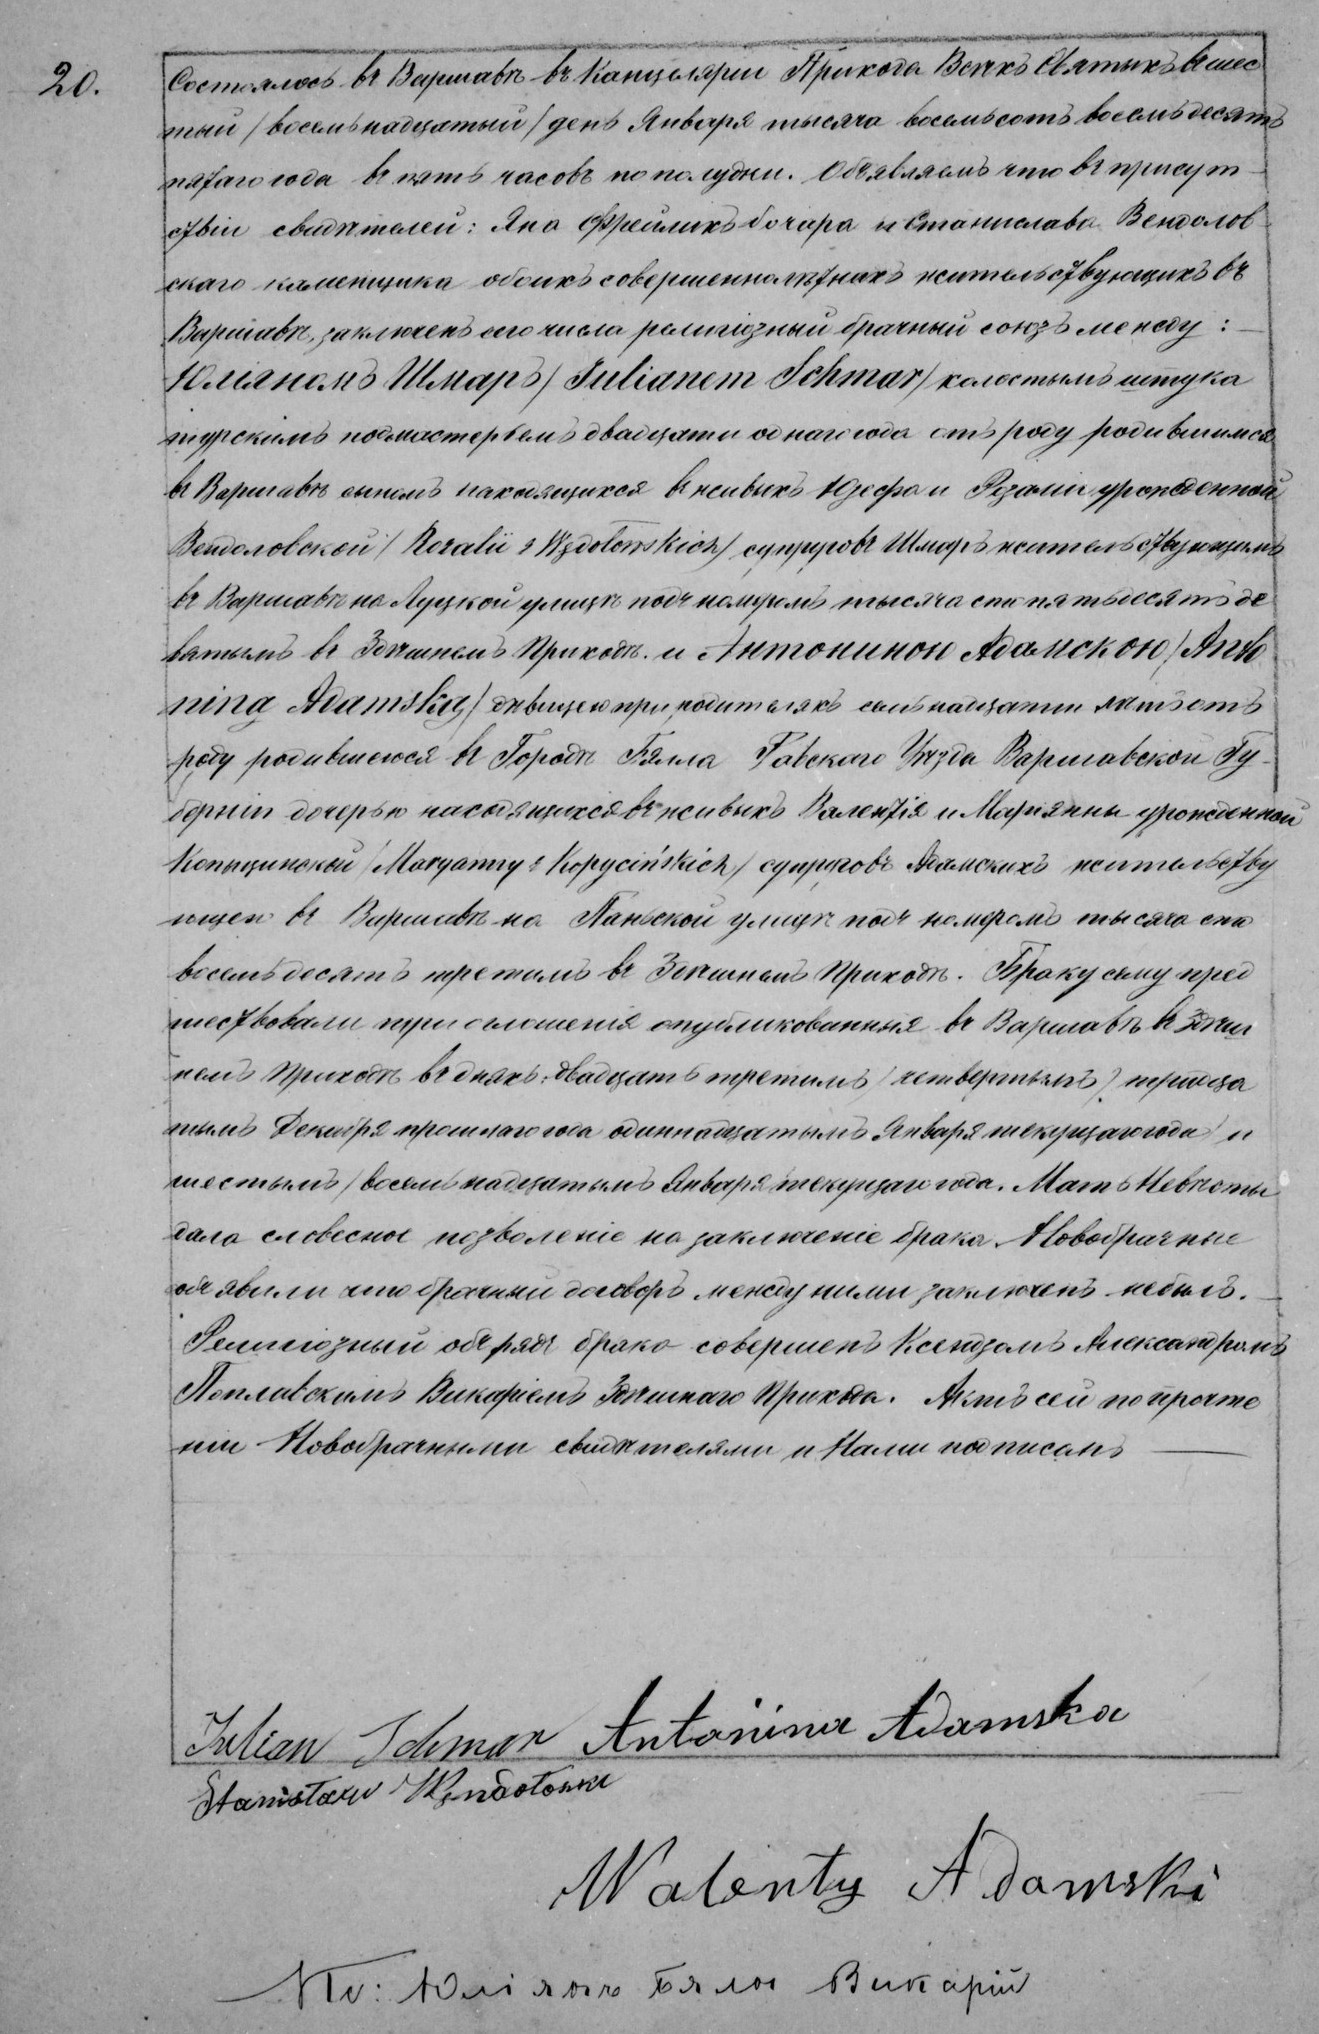 20.
Состоялось въ Варшавѣ въ Канцелярiи Прихода Всѣхъ Святыхъ въ шес
тый / восемьнадцатый / день Января тысяча восемьсотъ восемьдесятъ
пятаго года въ пять часовъ пополудни. Объявляемъ что въ присут-
ствiи свидѣтелей: Яна Фрейлихъ бочара и Станислава Вендолов-
скаго каменщика обоихъ совершеннолѣтнихъ жительствующихъ въ
Варшавѣ, заключенъ сего числа религiозный брачный союзъ между: —
Юлiяномъ Шмаръ / Julianem Schmar / холостымъ штука
турскимъ подмастерьемъ двадцати одного года отъ роду родившимся
въ Варшавѣ сыномъ находящихся въ живыхъ Юзефа и Розалiи урожденной
Вендоловской / Rozalii z Wędołowskich / супруговъ Шмаръ жительствующимъ
въ Варшавѣ на Луцкой улицѣ подъ номеромъ тысяча сто пятьдесятъ де
вятымъ въ Здѣшнемъ Приходѣ. и Антониною Адамскою / Anto
niną Adamską / дѣвицею при родителяхъ семьнадцати лѣтъ отъ
роду родившеюся въ Городѣ Бяла Равскаго Уѣзда Варшавской Гу-
бернiи дочерью находящихся въ живыхъ Валентiя и Марiянны урожденной
Копыцинской / Maryanny z Kopycińskich / супруговъ Адамскихъ жительству
ющею въ Варшавѣ на Паньской улицѣ подъ номеромъ тысяча сто
восемьдесятъ третимъ въ Здѣшнемъ Приходѣ. Браку сему пред
шествовали три оглашенiя опубликованныя въ Варшавѣ въ Здѣш
немъ Приходѣ въ дняхъ: двадцать третимъ / четвертымъ / тридца
тымъ Декабря прошлаго года одиннадцатымъ Января текущаго года и
шестымъ / восемьнадцатымъ Января текущаго года. Мать Невѣсты
дала словесное позволенiе на заключенiе брака. Новобрачные
объявили что брачный договоръ между ними заключенъ небылъ. —
Религiозный обрядъ брака совершенъ Ксендзомъ Александромъ
Поплавскимъ Викарiемъ Здѣшнаго Прихода. Актъ сей по прочте
нiи Новобрачными свидѣтелями и Нами подписанъ —
Julian Schmar Antonina Adamska
Stanisław Wendołowski
Walenty Adamski
Юлiянъ Бялы Викарiй